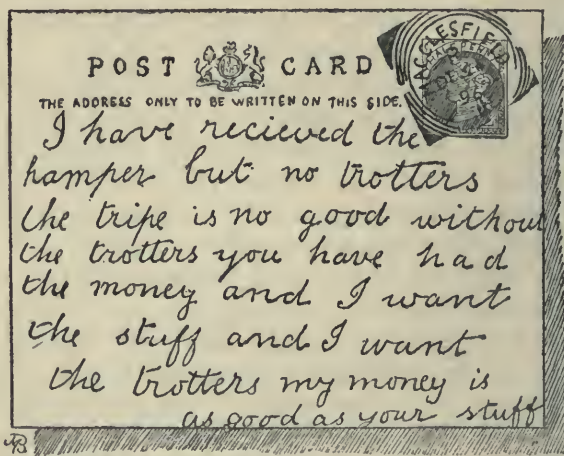 POST CARD
THE ADDRESS ONLY TO BE WRITTEN ON THIS SIDE.
MACCLESFIELD
I have recieved the
hamper but no trotters
the tripe is no good without
the trotters you have had
the money and I want
the stuff and I want
the trotters my money is
as good as your stuff